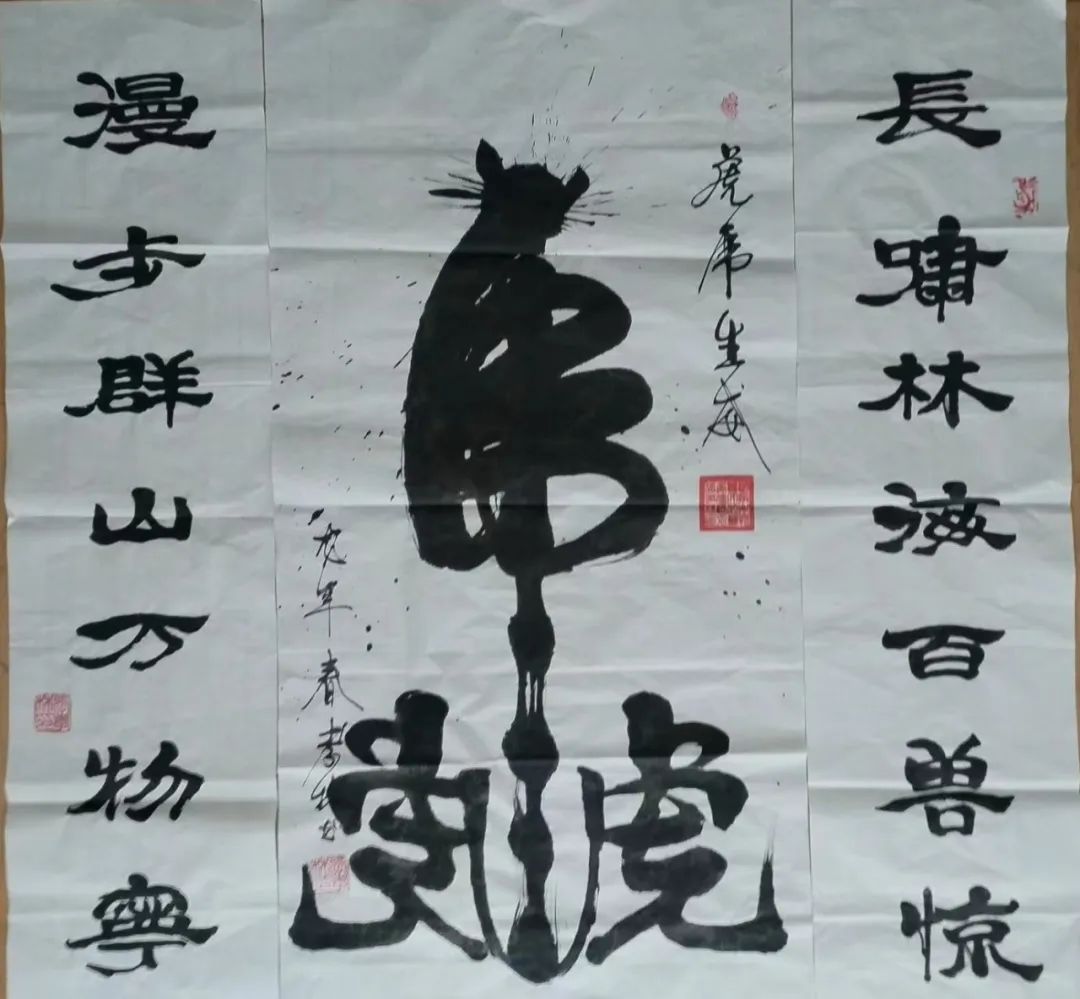 長嘯林海百兽惊
虎虎生威
虎
虎
虎年春
漫步群山万物寧